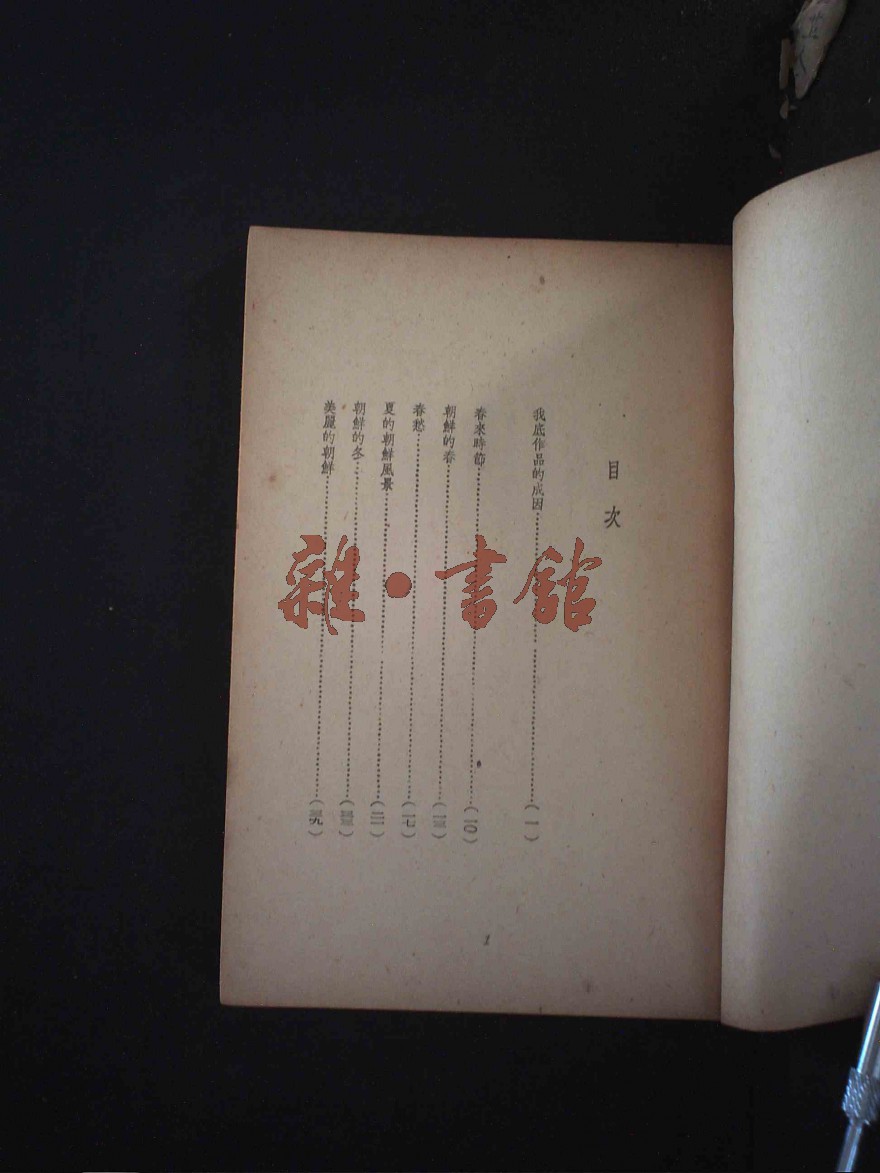 目次
我底作品的成因……(一)
春來時節……(一〇)
朝鮮的春……(一三)
春愁……(一七)
夏的朝鮮風景……(二二)
朝鮮的冬……
美麗的朝鮮……
1
雜·書館